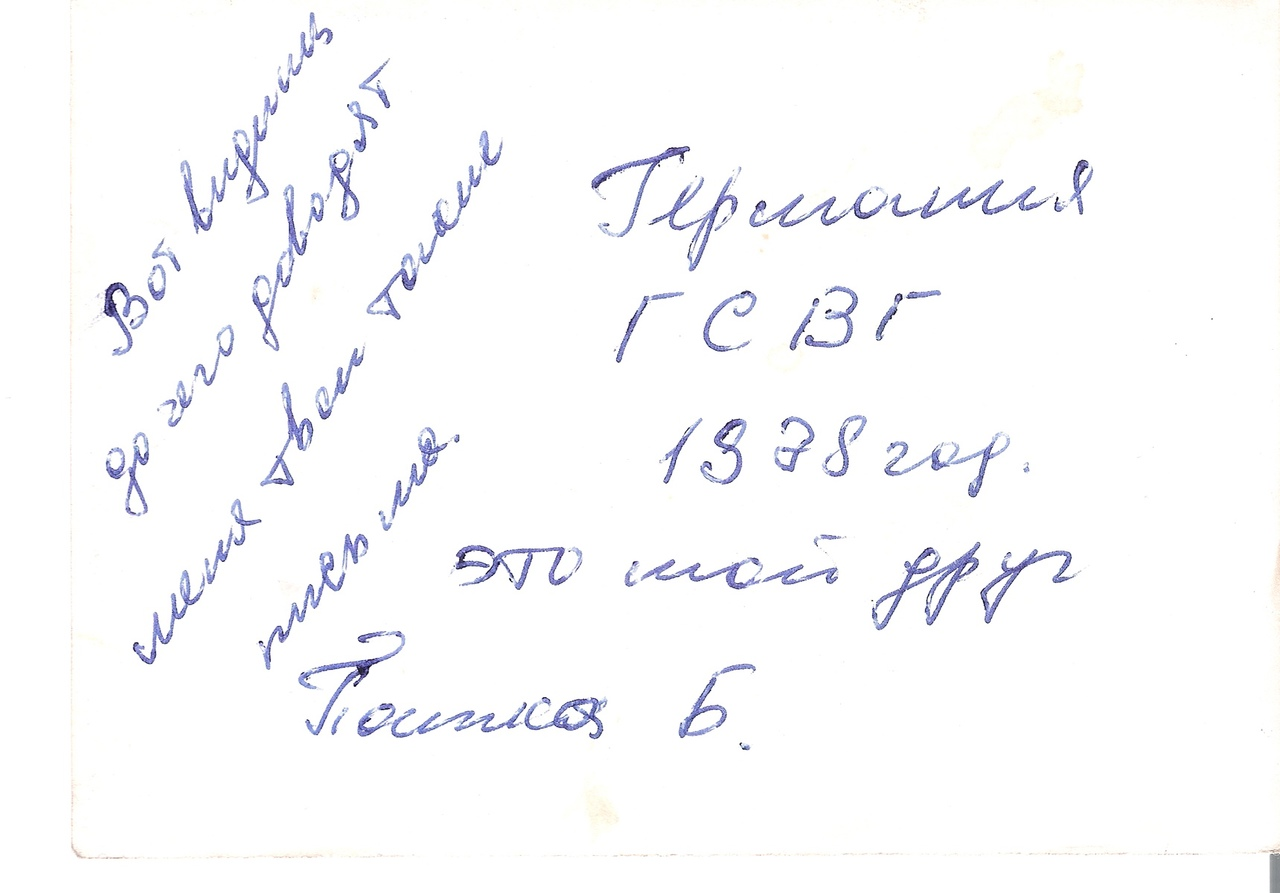 Вот видишь
до чего доводят
меня твои такие
письма.
Германия
ГСВГ
1978 год.
это мой друг
Пашка Б.